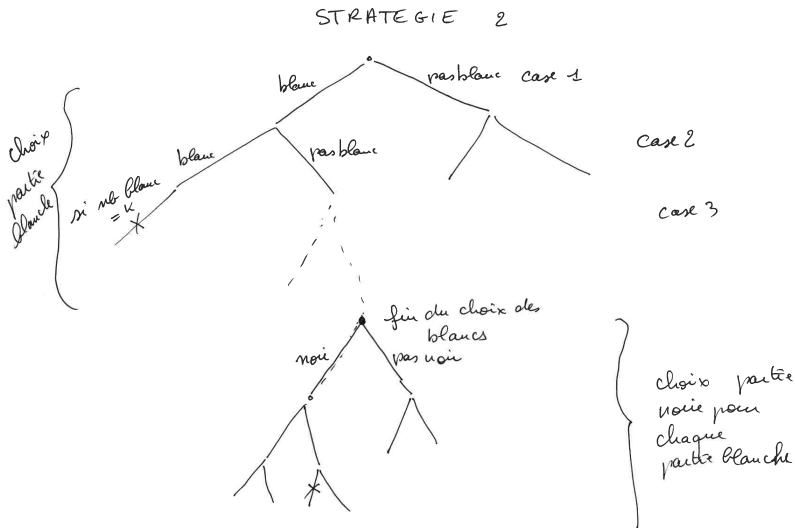 STRATEGIE 2
blanc
pas blanc case 1
case 2
blanc
pas blanc
choix
partie
blanche
si nb blanc
= K
case 3
fin du choix des
blancs
noir
pas noir
choix partie
noire pour
chaque
partie blanche